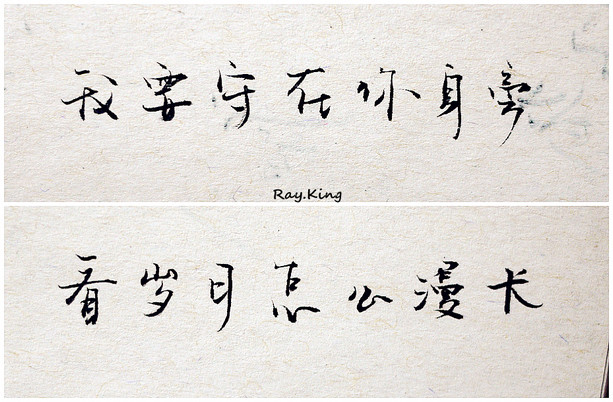 我要守在你身旁
Ray.King
看岁月怎么漫长